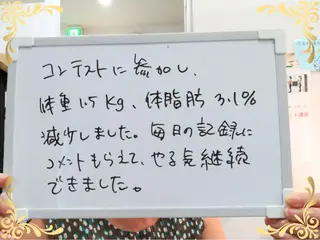 コンテストに参加し、
体重1.5Kg、体脂肪3.1%
減少しました。毎日の記録に
コメントもらえて、やる気継続
できました。